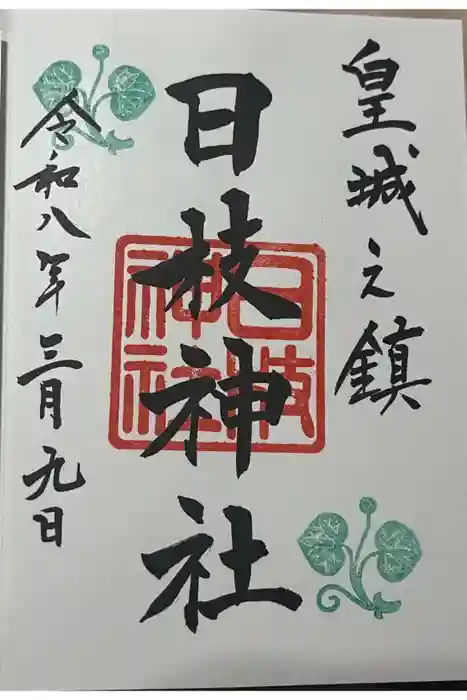 皇城之鎮
日枝神社
日枝
神社
令和八年三月九日